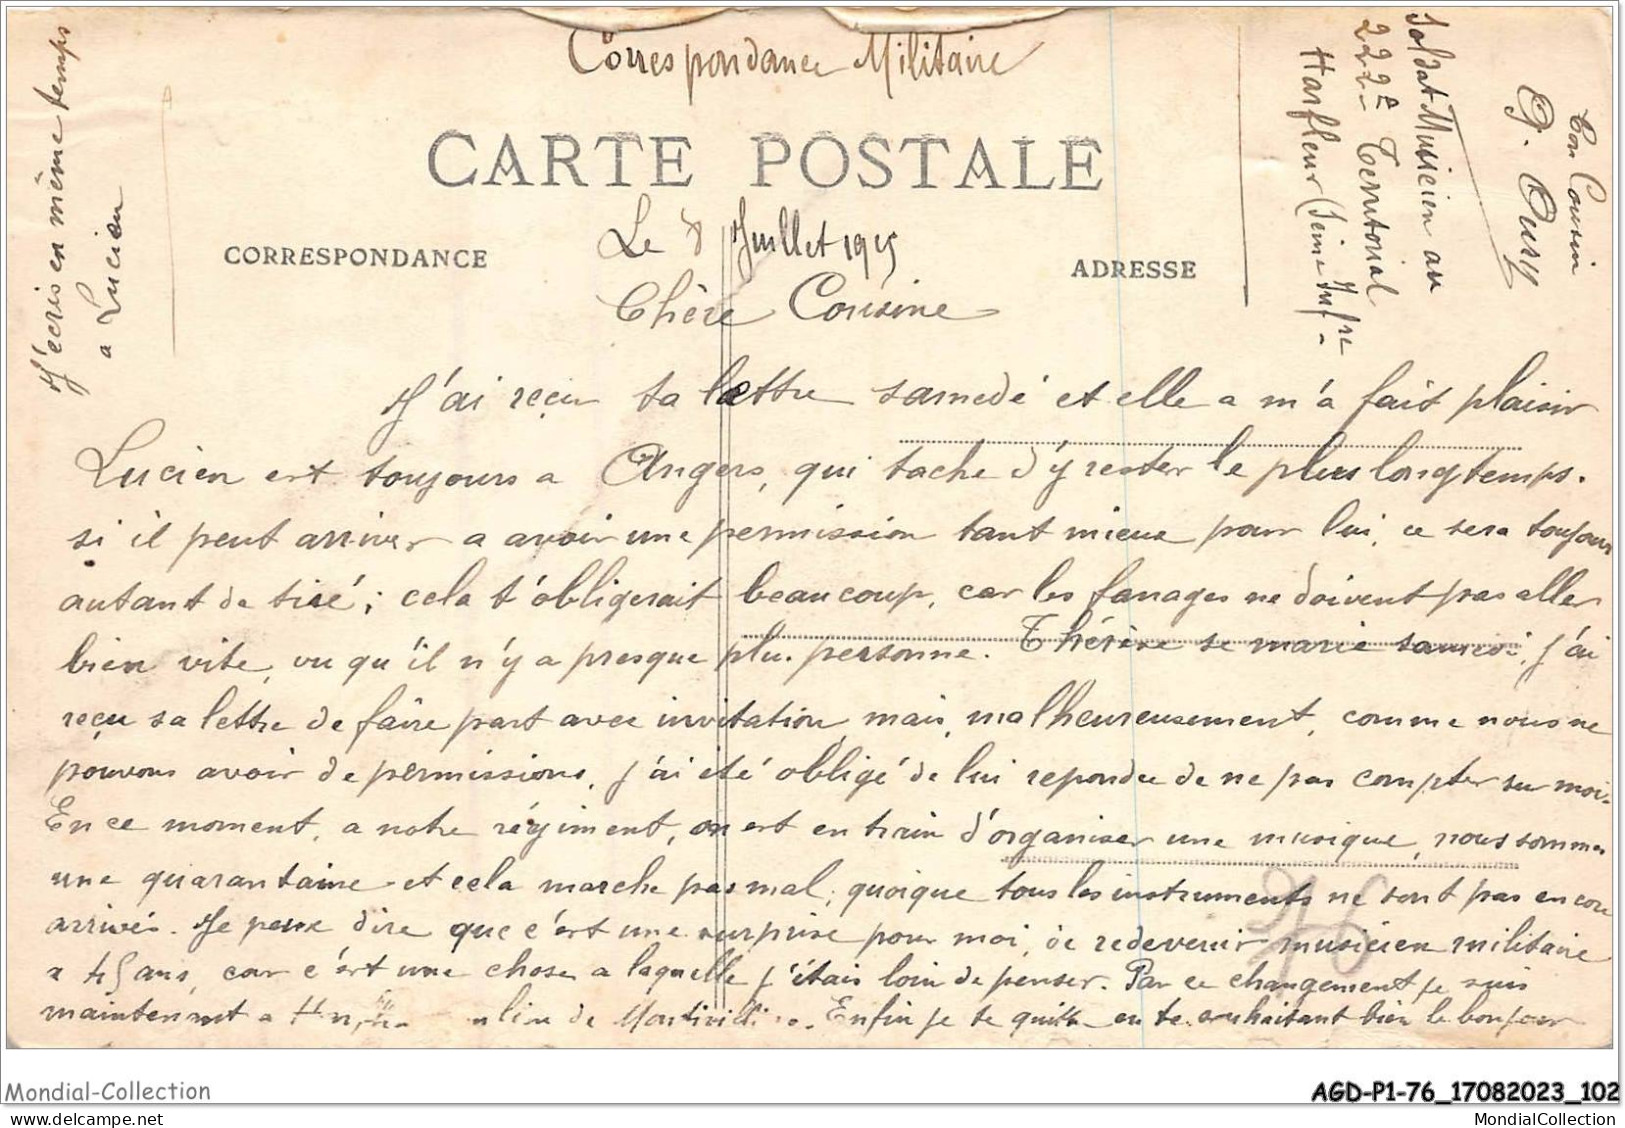 Correspondance Militaire
CARTE POSTALE
CORRESPONDANCE
ADRESSE
Le 8 Juillet 1915
Chère Cousine
J'ai reçu ta lettre samedi et elle a m'a fait plaisir
Lucien est toujours a Angers, qui tache d'y rester le plus longtemps.
si il peut arriver a avoir une permission tant mieux pour lui, ce sera toujours
autant de tiré; cela t'obligerait beaucoup, car les fanages ne doivent pas aller
bien vite, vu qu'il n'y a presque plus personne. Thérèse se marie samedi, j'ai
reçu sa lettre de faire part avec invitation, mais, malheureusement, comme nous ne
pouvons avoir de permissions, j'ai été obligé de lui repondre de ne pas compter sur moi.
En ce moment, a notre régiment, on est en train d'organiser une musique, nous sommes
une quarantaine et cela marche pas mal; quoique tous les instruments ne sont pas encore
arrivés. Je peux dire que c'est une surprise pour moi, de redevenir musicien militaire
a 45 ans, car c'est une chose a laquelle j'étais loin de penser. Par ce changement je suis
maintenant a de Enfin je te quitte en te souhaitant bien le bonjour
Ton Cousin
G. Oury
Soldat Musicien au
222e Territorial
Harfleur (Seine Infre
J'écris en même temps
a Lucien
76
Mondial-Collection
AGD-P1-76_17082023_102
MondialCollection